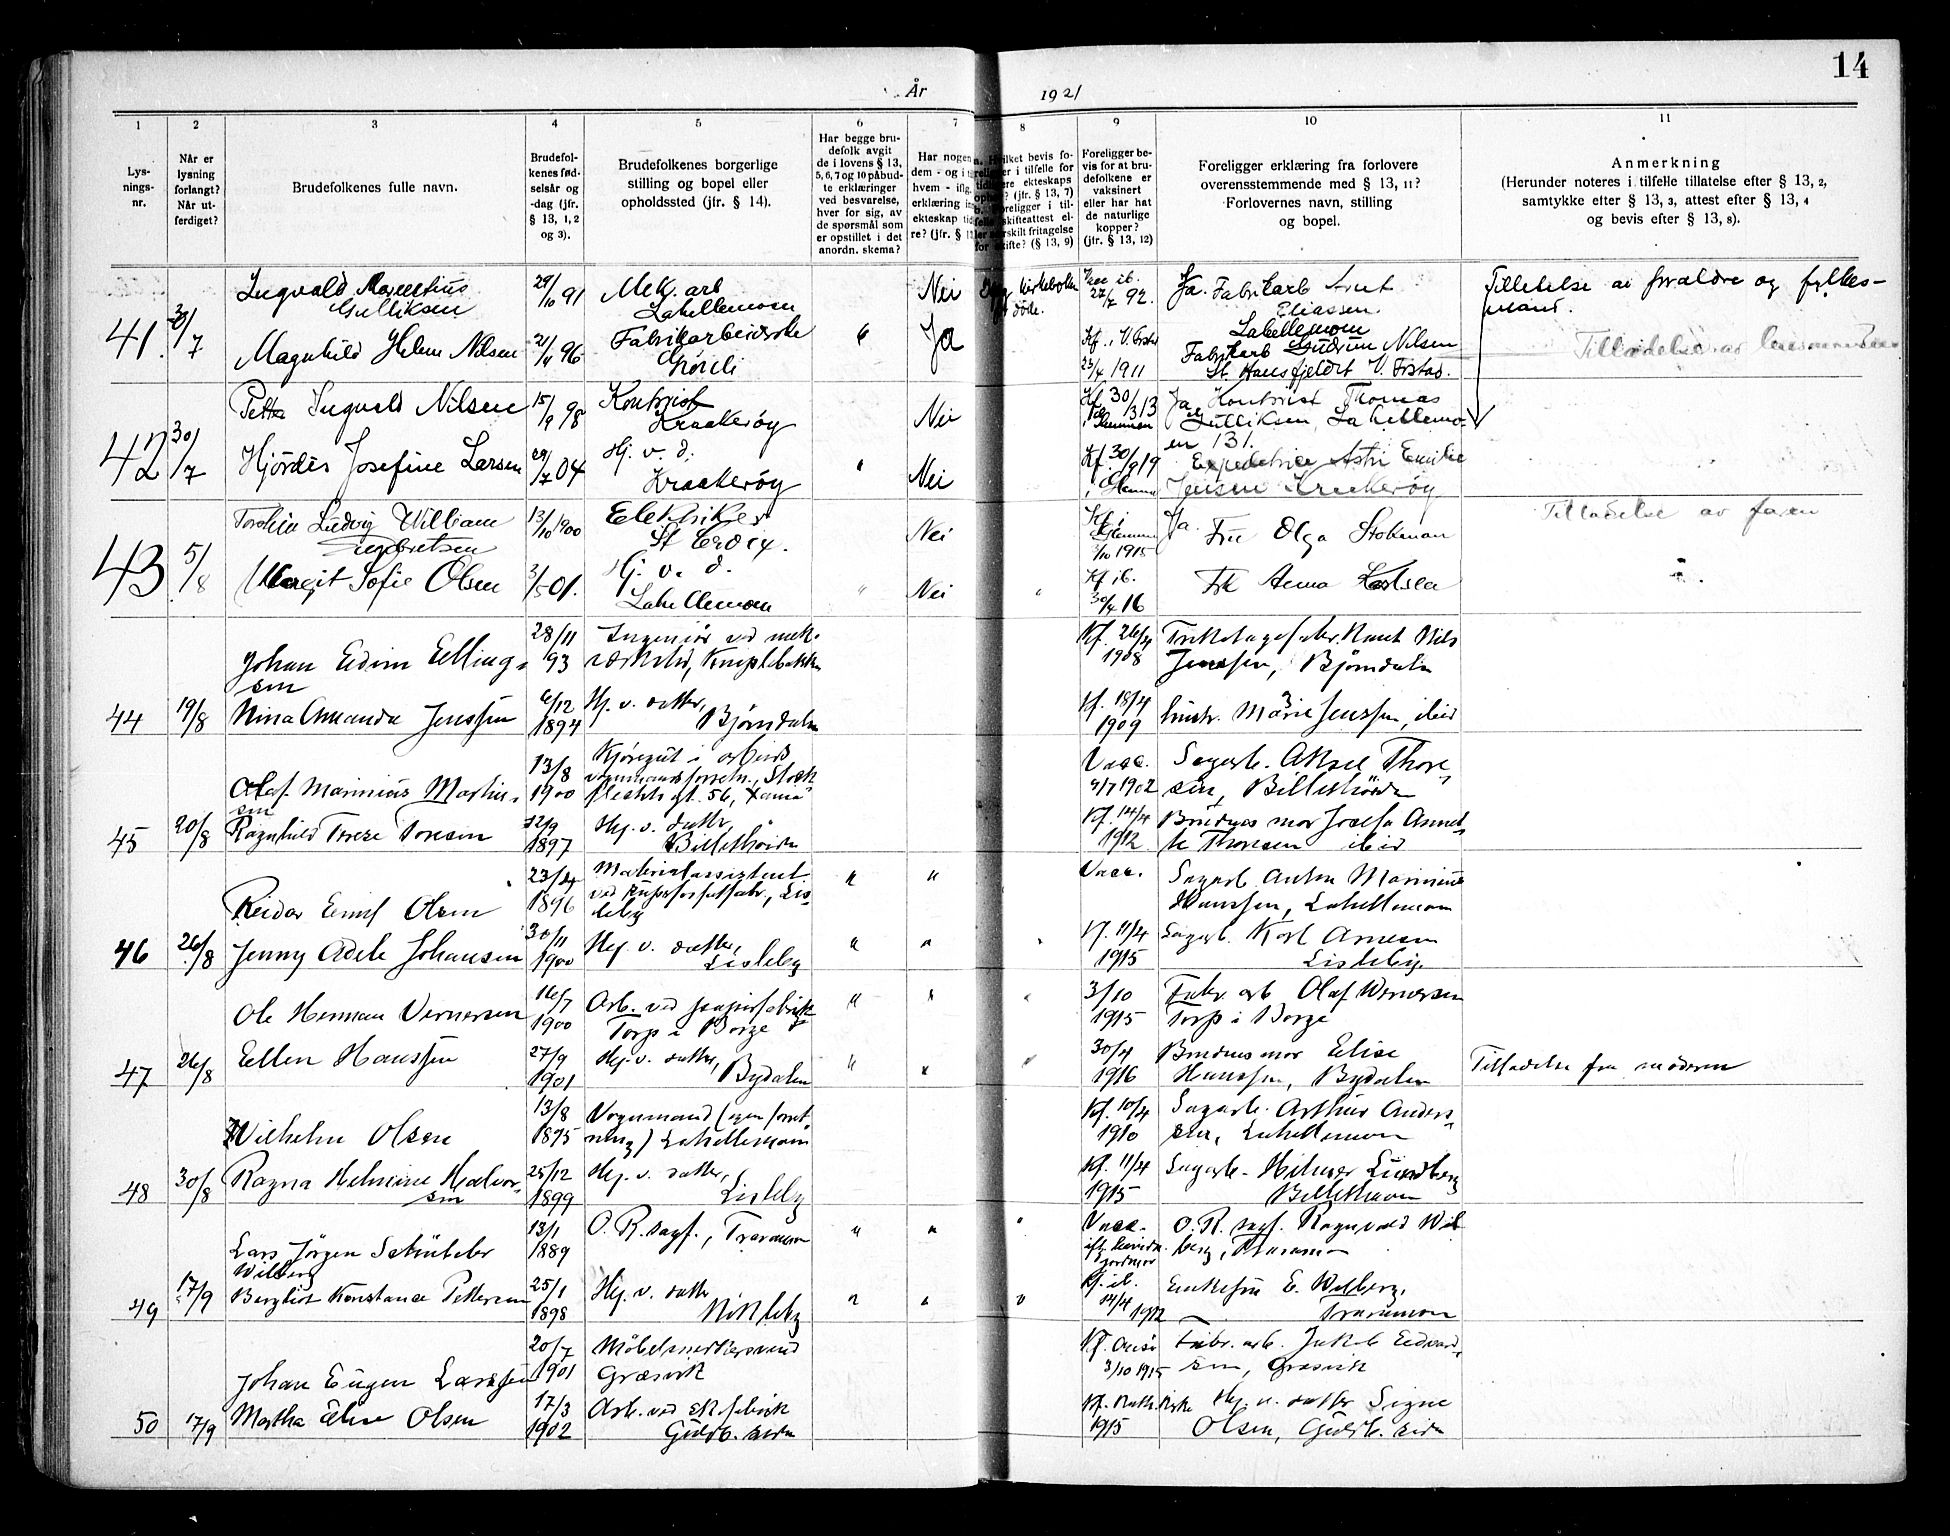 14
År 1921
1 2 3 4 5 6 7 8 9 10 11
Lys-
nings-
nr.
Når er
lysning
forlangt?
Når ut-
ferdiget?
Brudefolkenes fulle navn.
Brudefol-
kenes fød-
selsår og
-dag (jfr.
§ 13, 1, 2
og 3).
Brudefolkenes borgerlige
stilling og bopel eller
opholdssted (jfr. § 14).
Har begge bru-
defolk avgit
de i lovens § 13,
5, 6, 7 og 10 påbud-
te erklæringer
ved besvarelse,
hver for sig, av
de spørsmål som
er opstillet i det
anordn. skema?
Har nogen
dem - og i
hvem - iflg.
erklæring
ekteskap
re? (jfr. §
bevis fo-
i tilfelle for
ekteskaps
(jfr. § 13, 7)
Foreligger i til-
skifteattest el-
særskilt fritagelse
for skifte? (§ 13, 9)
Foreligger be-
vis for at bru-
defolkene er
vaksinert
eller har hat
de naturlige
kopper?
(jfr. § 13, 12)
Foreligger erklæring fra forlovere
overensstemmende med § 13, 11?
Forlovernes navn, stilling
og bopel.
Anmerkning
(Herunder noteres i tilfelle tillatelse efter § 13, 2,
samtykke efter § 13, 3, attest efter § 13, 4
og bevis efter § 13, 8).
41. 30/7
Ingvald
Gulliksen
29/10 91
Mek. arb
Labellemoen
Nei
27/7 92.
Ja. Fabrikarb
Eliassen
Labellemoen
Tilladelse av forældre og fylkes-
mand.
Magnhild Helene Nilsen
21/4 96
Fabrikarbeiderske
"
Ja
23/4 1911
Fabrikarb Gudrun Nilsen
St. Hansfjeldet V. Frstad.
Tilladelse av
42 30/7
Petter Ingvald Nilsen
15/9 98
Kontorist
Kraakerøy
Nei
Kf 30/3 13
Ja Kontorist Thomas
Gulliksen, Labellemo-
en 131.
Hjördis Josefine Larsen
29/7 04
Hj. v. d.
Kraakerøy
"
Nei
Kf. 30/9 19
i Glemmen
Expeditrice Astri Emilie
Jensen Kraakerøy
43 5/8
Torstein Ludvig William
13/10 1900
Elektriker
St Croix.
Nei
Kf i
Glemmen
3/10 1915
Ja. Fru Olga Stokman
Tilladelse av faren
Margit Sofie Olsen
3/5 01.
Hj. v. d.
Labellemoen
"
Nei
"
Kf ib.
30/4 16
Frk Anna Karlsen
"
44 19/8
Johan Edvin Elling-
sen
28/11
93
Ingeniør ved mek.
verksted, Kniplebakken
Kf. 26/4
1908
Trikotagefabr. Knut Nils
Jenssen, Bjørndalen
Nina Amanda Jenssen
6/12
1894
Hj. v. datter,
Bjørndalen
Kf. 18/4
1909
hustr. Marie Jenssen, ibid
45 20/8
Olaf Marinius Martin-
sen
13/8
1900
Kjøregut i arbeids
vognmandsforretn., Stock
flethsgt. 56,
Vacc.
9/7 1902
Sagarb. Aksel Thore-
sen, Billethörden
Ragnhild Terese Toresen
12/9
1897
Hj. v. datter
Kf. 14/4
1912
Brudens mor Josefa Annet-
te Thoresen ibid
46 26/8
Reidar Emil Olsen
23/4
1896
Materialassistent
ved superfosfatfabr., Lis-
leby
" "
Vacc.
Sagarb Anton Marinius
Hanssen, Labellemoen
Jenny Adele Johansen
30/11
1900
Hj. v. datter,
Lisleby
" " "
Kf. 11/4
1915
Sagarb. Karl Arnesen
Lisleby.
47 26/8
Ole Herman Vernersen
16/7
1900
Arb. ved papirfabrikk
Torp i Borge
" " "
3/10
1915
Fabr. arb Olaf Wernersen
Torp i Borge
Ellen Hanssen
27/9
1901
Hj. v. datter,
Bydalen
" " "
30/4
1916
Brudens mor Elise
Hanssen, Bydalen
Tilladelse fra moderen
48 30/8
Wilhelm Olsen
13/8
1895
Vognmand (egen forret-
ning) Labellemoen
Kf. 10/4
1910
Sagarb. Arthur Anders-
sen, Labellemoen
Ragna Helmine Halvor-
sen
25/12
1899
Hj. v. datter,
Lisleby
Kf. 11/4
1915
Sagarb. Hilmer Lundberg
49 17/9
Lars Jörgen Schübeler
Wilberg
13/1
1889
O. R. sagf., Traraveien
" " "
Vacc.
O. R. sagf. Ragnvald Wil-
berg, Traraveien
Bergliot Konstance Pettersen
25/1
1898
Hj. v. datter
" " "
Kf. ib.
14/4 1912
Enkefru E. Wilberg,
Traraveien
50 17/9
Johan Eugen Larssen
20/7
1901
Möbelsnekkersvend
Græsvik
Kf. Onsö
3/10 1915
Fabr. arb. Jakob Edvard-
sen, Græsvik
Martha Elise Olsen
17/3
1902
Arb. ved skofabrik
Gudb. siden
1915
Hj. v. datter Signe
Olsen, Gudb. siden